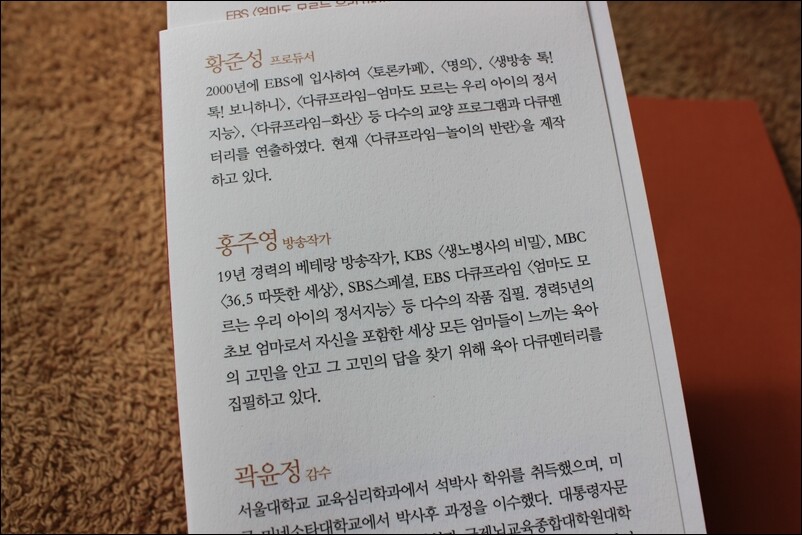 EBS 〈엄마도 모르는 우리 아이의
황준성 프로듀서
2000년에 EBS에 입사하여 〈토론카페〉, 〈명의〉, 〈생방송 톡!
톡! 보니하니〉, 〈다큐프라임-엄마도 모르는 우리 아이의 정서
지능〉, 〈다큐프라임-화산〉 등 다수의 교양 프로그램과 다큐멘
터리를 연출하였다. 현재 〈다큐프라임-놀이의 반란〉을 제작
하고 있다.
홍주영 방송작가
19년 경력의 베테랑 방송작가, KBS 〈생노병사의 비밀〉, MBC
〈36.5 따뜻한 세상〉, SBS스페셜, EBS 다큐프라임 〈엄마도 모
르는 우리 아이의 정서지능〉 등 다수의 작품 집필. 경력5년의
초보 엄마로서 자신을 포함한 세상 모든 엄마들이 느끼는 육아
의 고민을 안고 그 고민의 답을 찾기 위해 육아 다큐멘터리를
집필하고 있다.
곽윤정 감수
서울대학교 교육심리학과에서 석박사 학위를 취득했으며, 미
국 미네소타대학교에서 박사후 과정을 이수했다. 대통령자문
국제뇌교육종합대학원대학